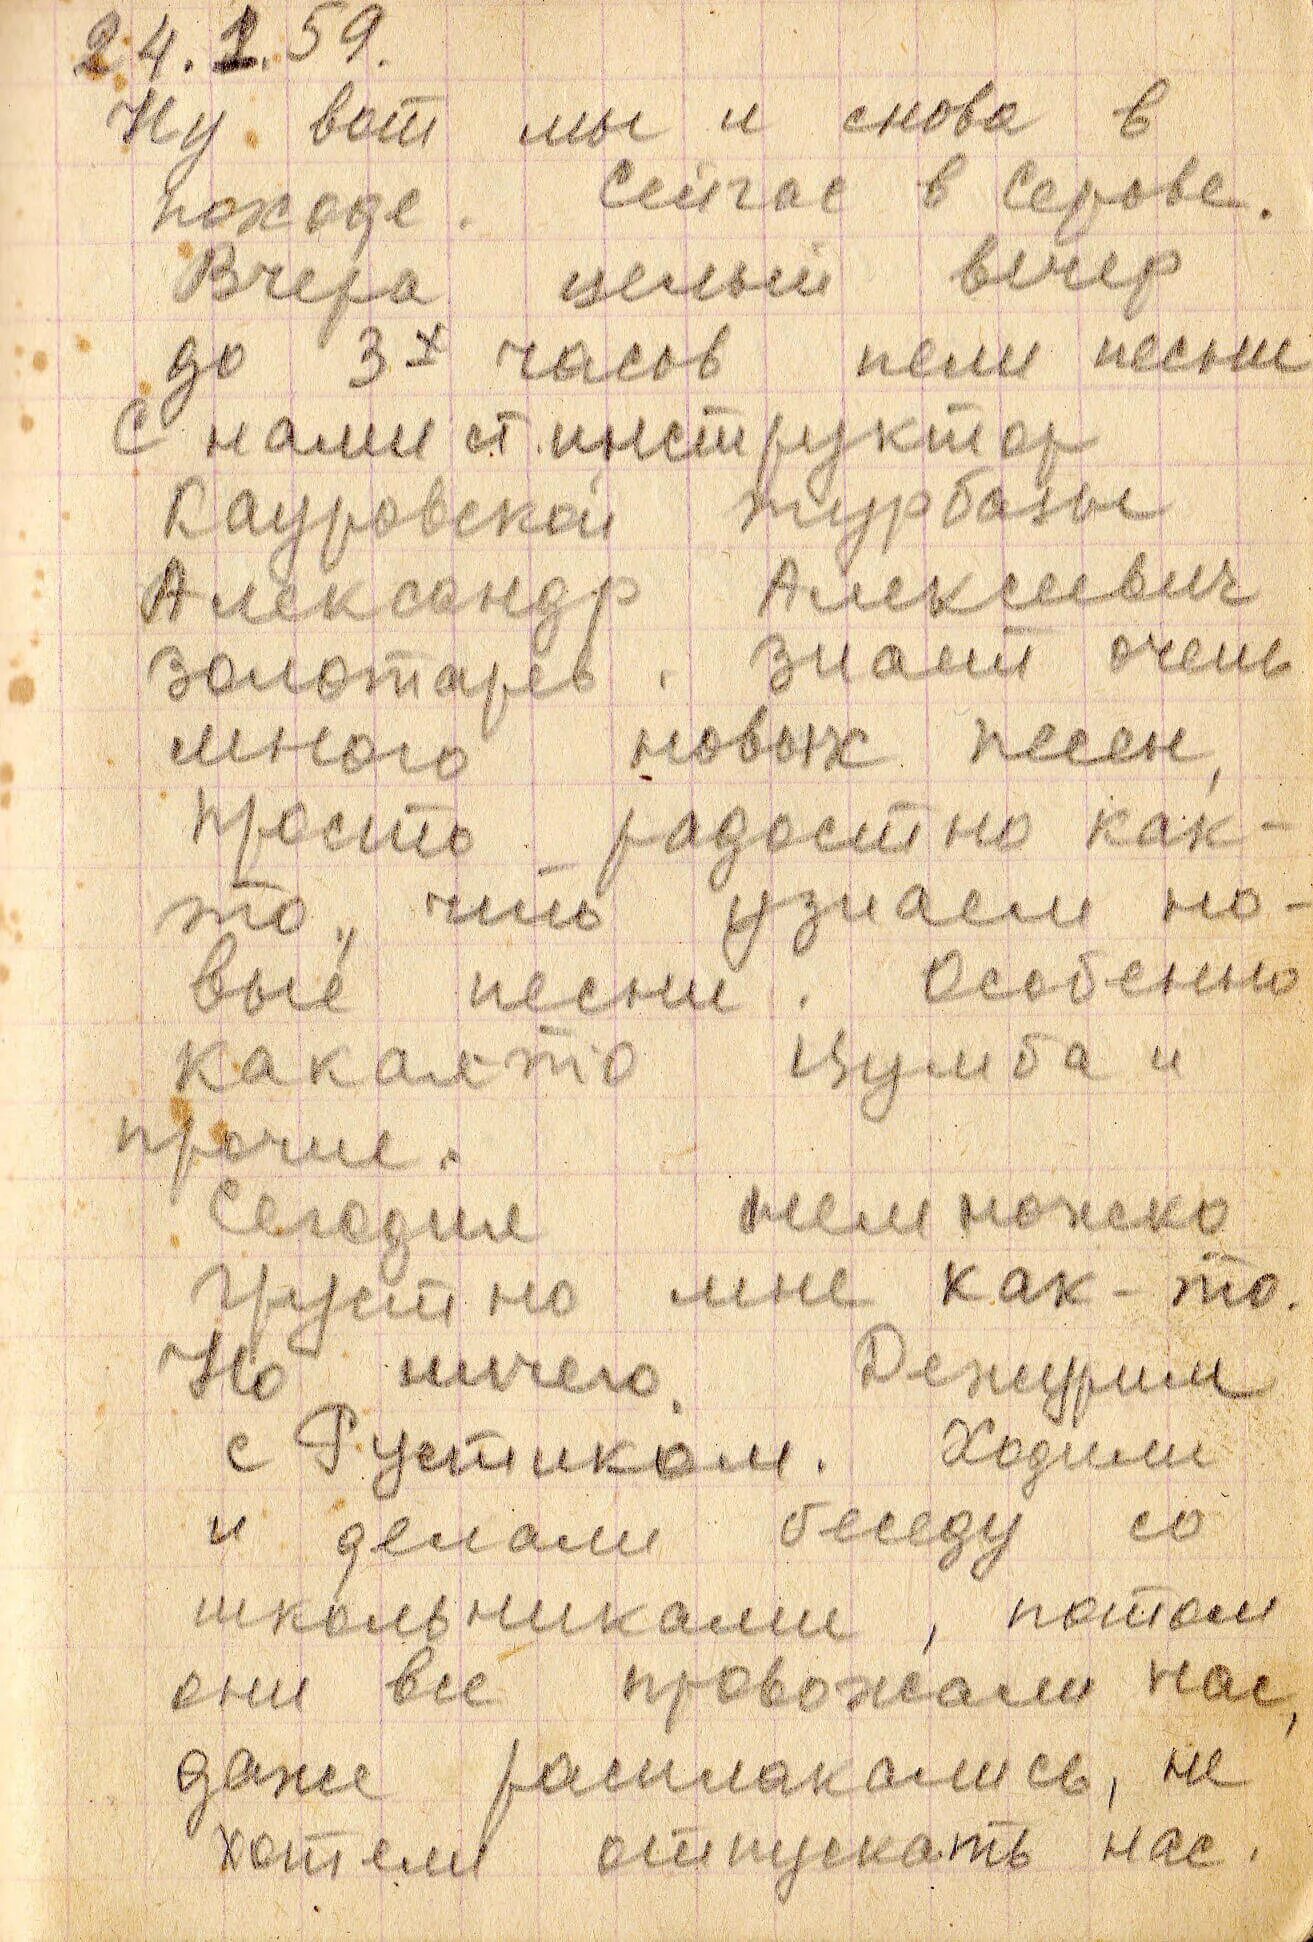 24.1.59.
Ну вот мы и снова в
походе. Сейчас в Серове.
Вчера целый вечер
до 3х часов пели песни
С нами ст. инструктор
Кауровской турбазы
Александр Алексеевич
Золотарев. Знает очень
много новых песен,
просто радостно как-
то, что узнаем но-
вые песни. Особенно
какая-то Цумба и
прочие.
Сегодня немножко
грустно мне как-то.
Но ничего. Дежурим
с Рустиком. Ходили
и делали беседу со
школьниками, потом
они все провожали нас,
даже расплакались, не
хотели отпускать нас.